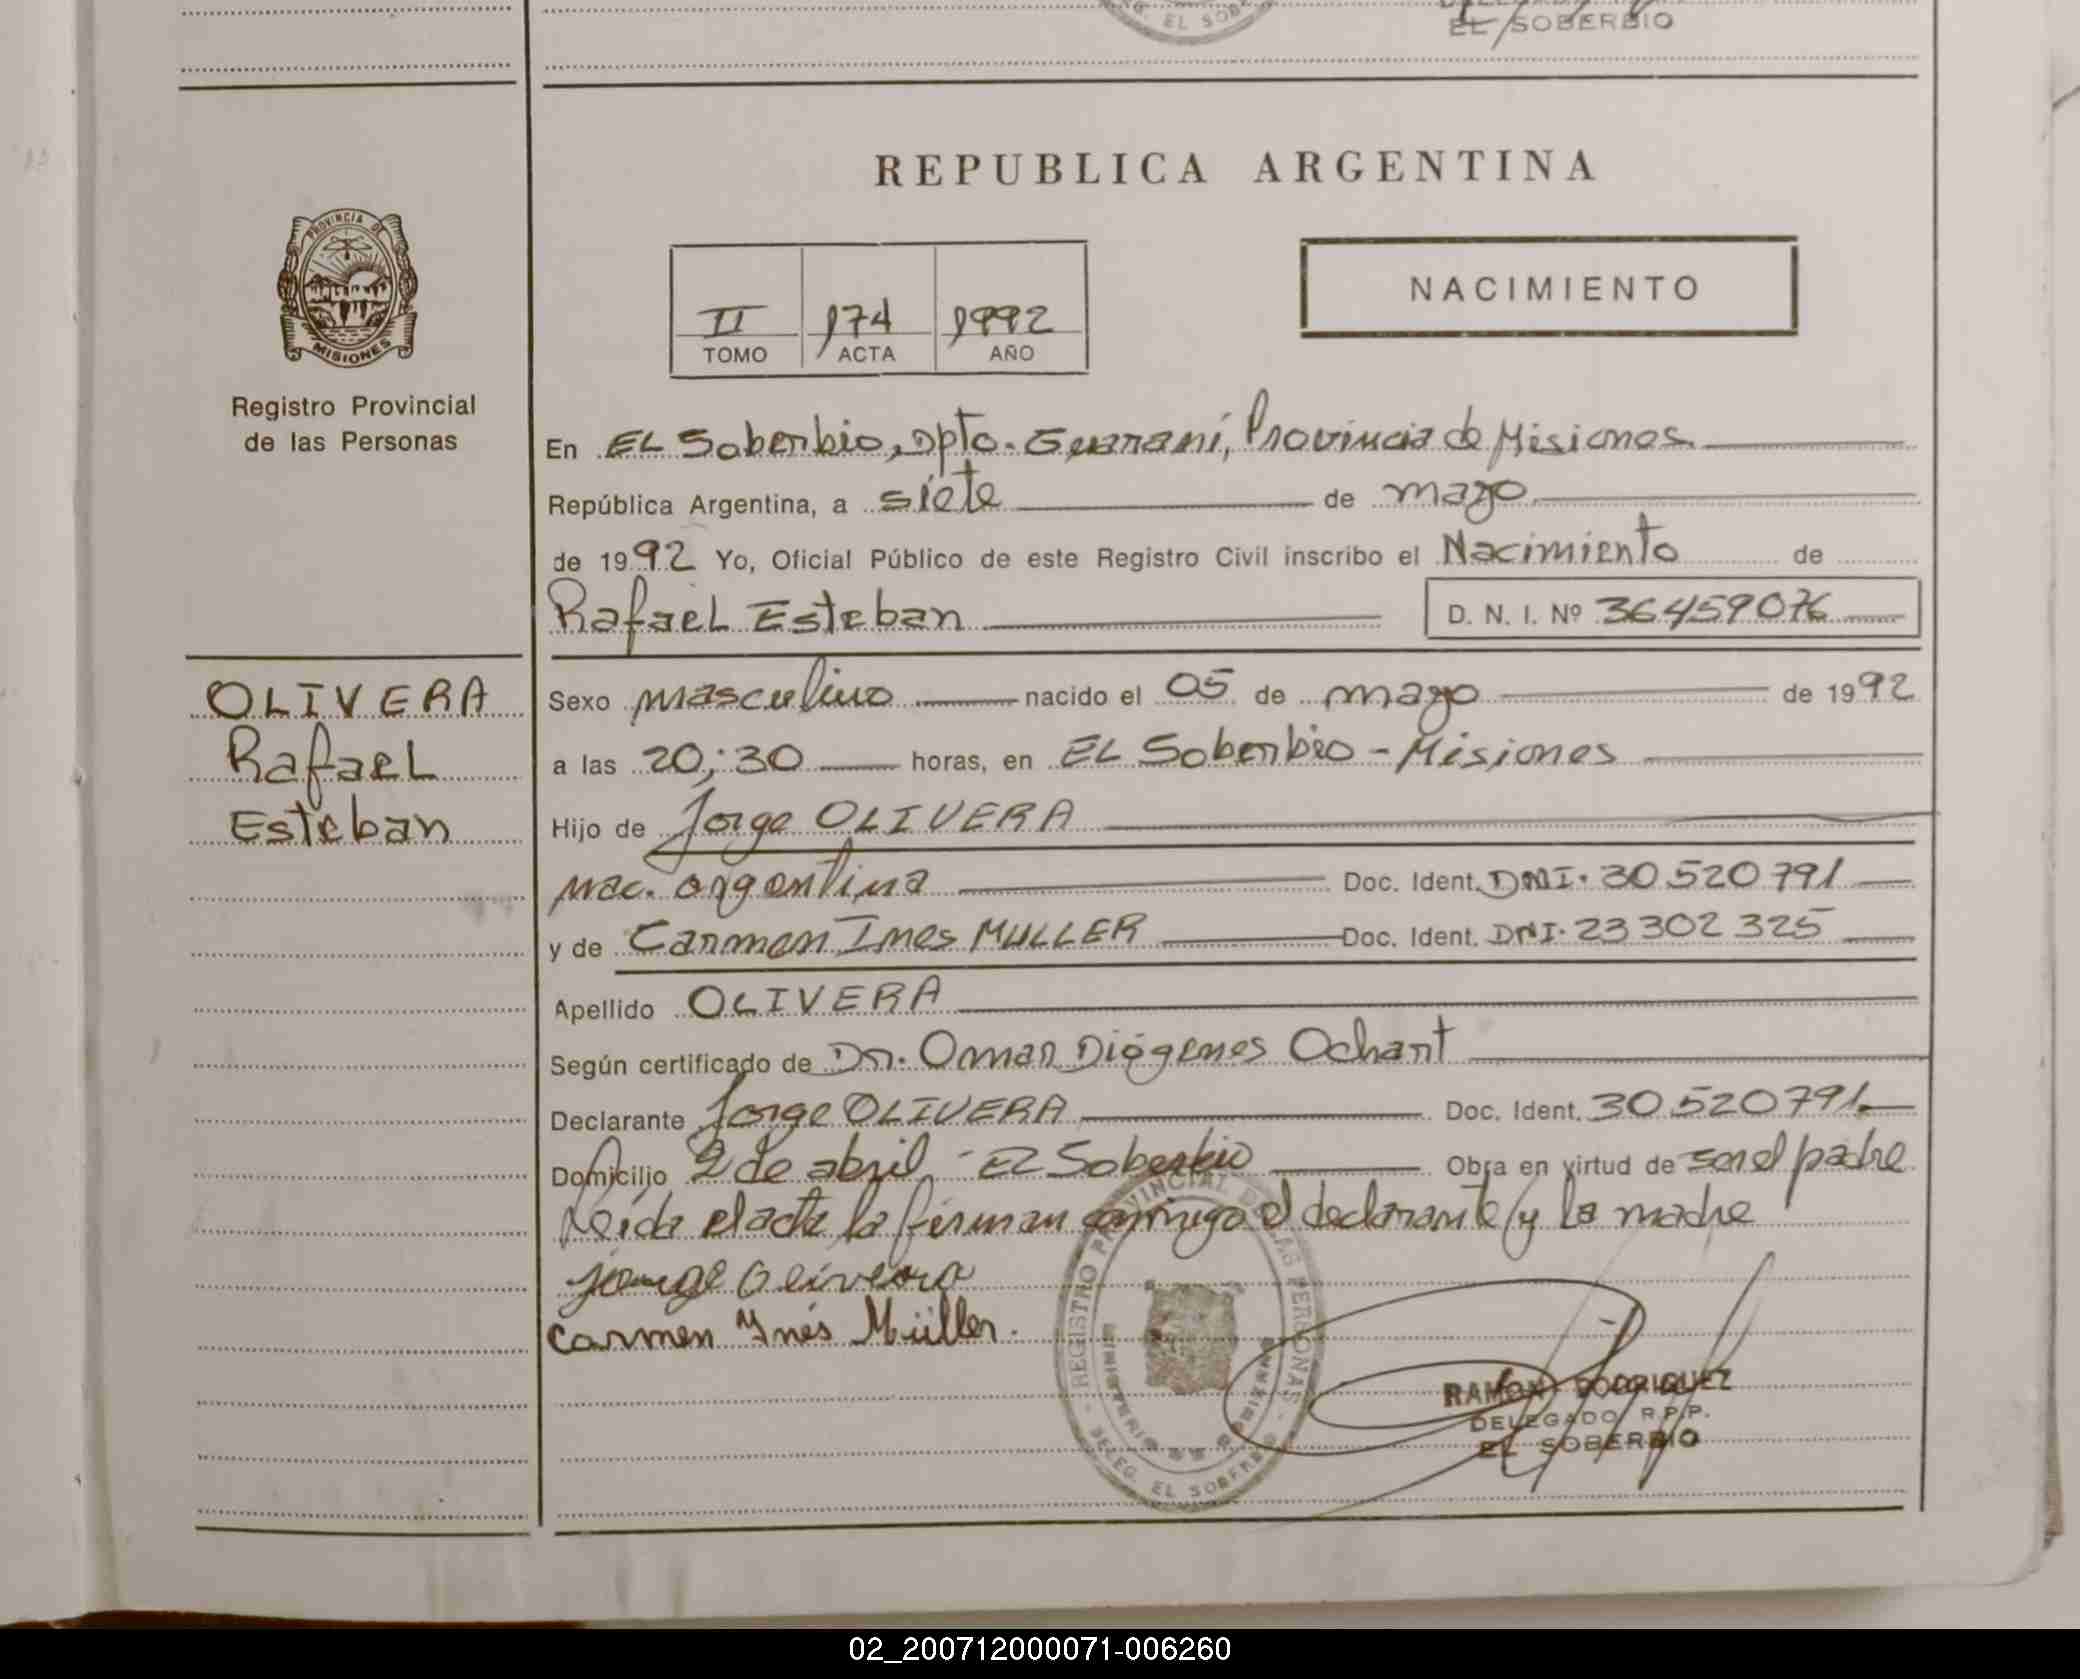 EL SOBERBIO
EG. EL SOBE
REPUBLICA ARGENTINA
PROVINCIA DE
MISIONES
Registro Provincial
de las Personas
II 174 1992
TOMO ACTA AÑO
NACIMIENTO
En EL Soberbio, Dpto. Guaraní, Provincia de Misiones
República Argentina, a siete de mayo
de 1992 Yo, Oficial Público de este Registro Civil inscribo el Nacimiento de
Rafael Esteban D. N. I. Nº 36459076
OLIVERA
Rafael
Esteban
Sexo masculino nacido el 05 de mayo de 1992
a las 20;30 horas, en EL Soberbio - Misiones
Hijo de Jorge OLIVERA
nac. argentina Doc. Ident. DNI. 30 520 791
y de Carmen Ines MULLER Doc. Ident. DNI. 23 302 325
Apellido OLIVERA
Según certificado de Dr. Omar Diógenes Ochart
Declarante Jorge OLIVERA Doc. Ident. 30 520 791
Domicilio 2 de abril - El Soberbio Obra en virtud de ser el padre
Leída el acta la firman conmigo el declarante y la madre
Jorge Olivera
Carmen Ynés Müller.
REGISTRO PROVINCIAL DE LAS PERSONAS
MINISTERIO
DELEG. EL SOBERBIO
RAMON RODRIGUEZ
DELEGADO R.P.P.
EL SOBERBIO
02_200712000071-006260